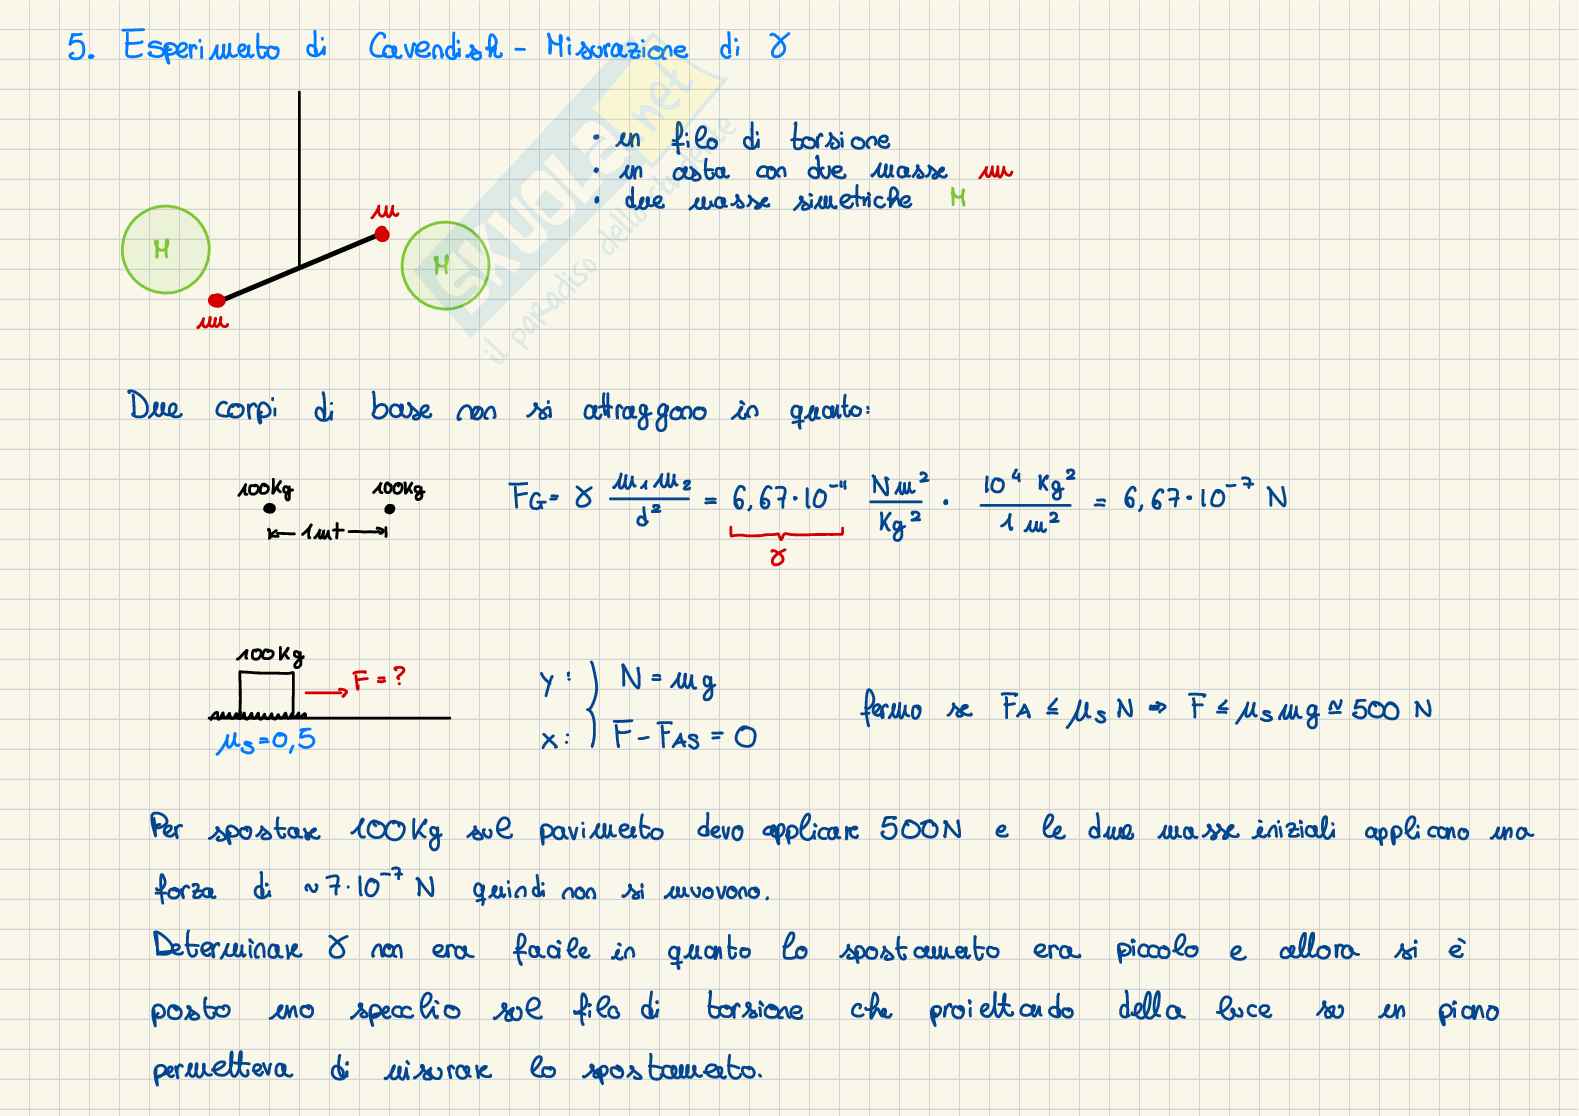 5. Esperimento di Cavendish - Misurazione di γ
• un filo di torsione
• un asta con due masse m
• due masse simetriche M
m
M
M
m
Due corpi di base non si attraggono in quanto:
100Kg 100Kg
1mt
F_G = γ m₁m₂/d² = 6,67·10⁻¹¹ Nm²/Kg² · 10⁴ Kg²/1 m² = 6,67·10⁻⁷ N
γ
100Kg
F = ?
μs=0,5
y: N = mg
x: F - F_AS = 0
fermo se F_A ≤ μs N ⇒ F ≤ μs mg ≃ 500 N
Per spostare 100Kg sul pavimento devo applicare 500N e le due masse iniziali applicano una
forza di ~7·10⁻⁷ N quindi non si muovono.
Determinare γ non era facile in quanto lo spostamento era piccolo e allora si è
posto uno specchio sul filo di torsione che proiettando della luce su un piano
permetteva di misurare lo spostamento.
SKUOLA.net
il paradiso dello studente